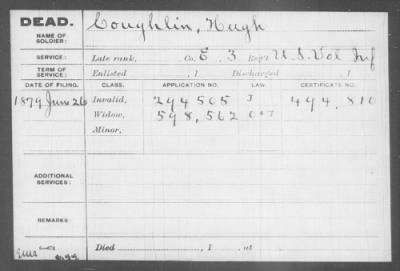 DEAD. Coughlin, Hugh
NAME OF SOLDIER:
SERVICE: Late rank, Co. E, 3 Reg't U.S. Vol Inf
TERM OF SERVICE: Enlisted , 1 Discharged , 1
DATE OF FILING. CLASS. APPLICATION NO. LAW. CERTIFICATE NO.
1879 June 26 Invalid, 294505 J 494,810
Widow, 598,562
Minor,
ADDITIONAL SERVICES:
REMARKS:
Died , 1 , at